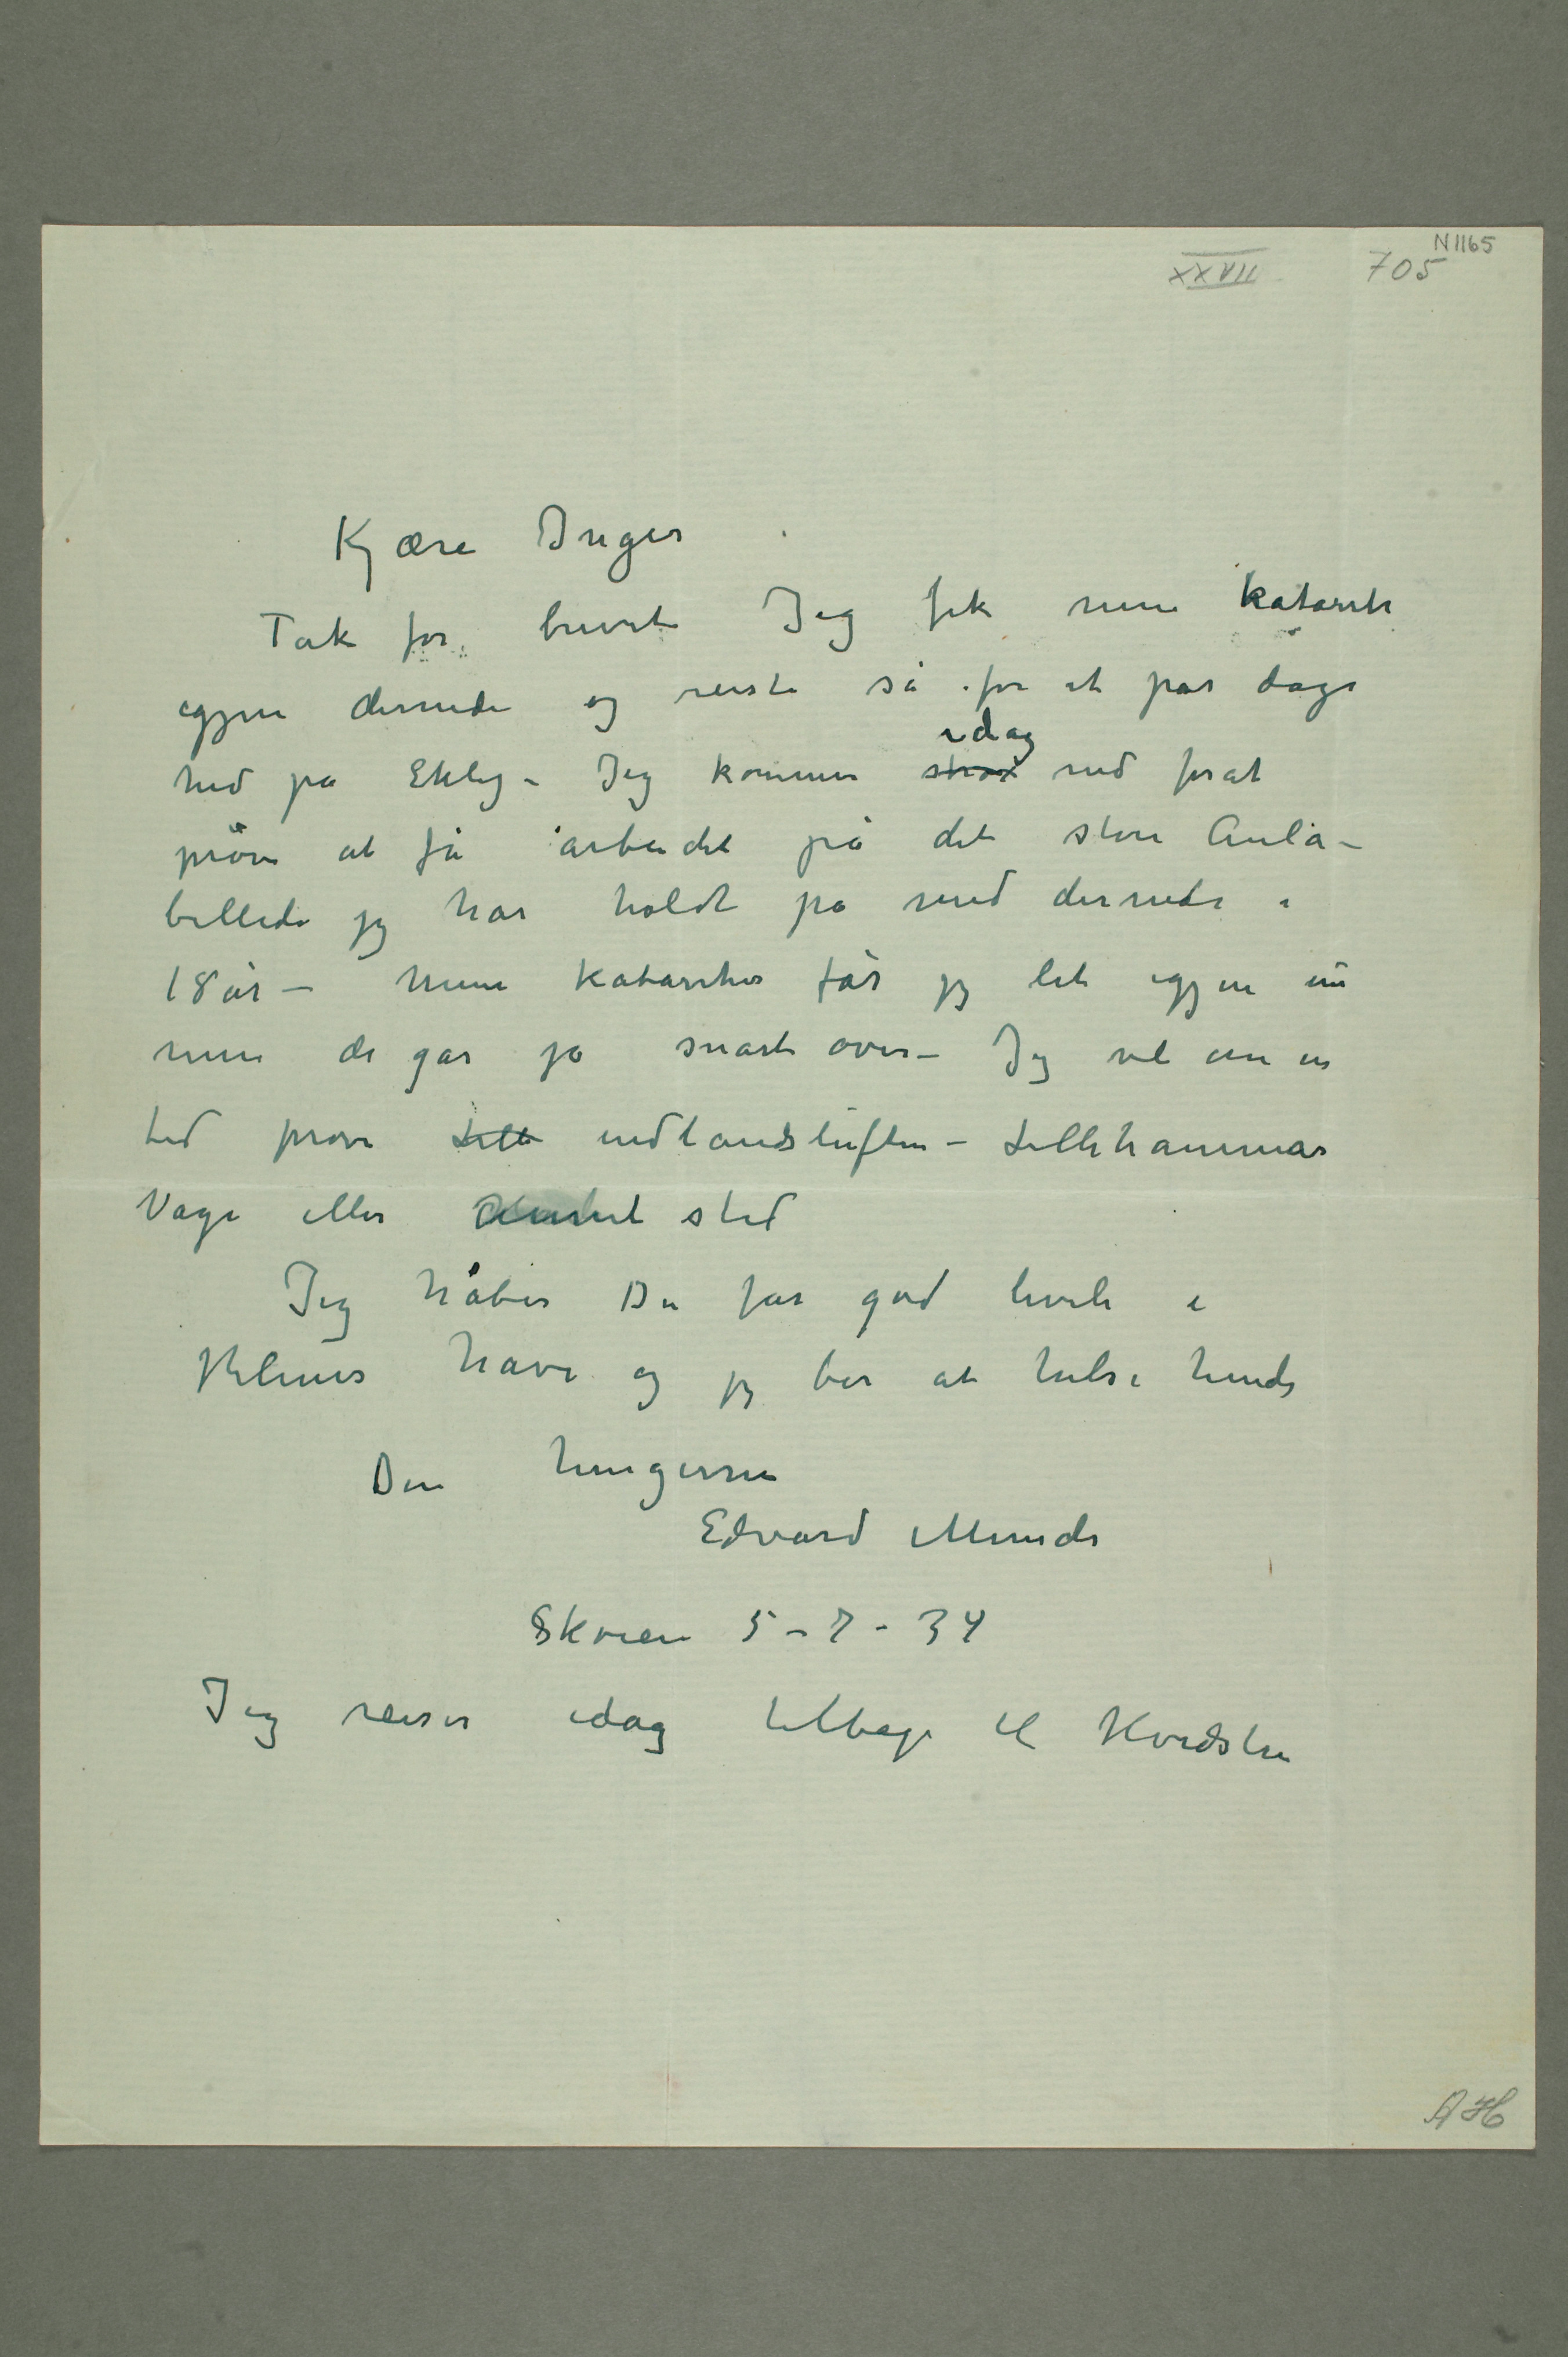 N 1165
XXVII 705
Kjære Inger
Tak for brevet Jeg fik min katarrh
igjen dernede og reiste så for et par dage
hid på Ekely – Jeg kommer idag ned forat
prøve at få arbeidet på det store Aula-
billede jeg har holdt på med dernede i
18 år – Mine katarrher får jeg let igjen nu
men de går jo snart over – Jeg vil om en
tid prøve Lill indlandsluften – Lillehammer
Vage eller annet sted
Jeg håber Du får god hvile i
Helmers have og jeg ber at hilse hende
Din hengivne
Edvard Munch
Skøien 5-7-34
Jeg reiser idag tilbage til Hvidsten
AH